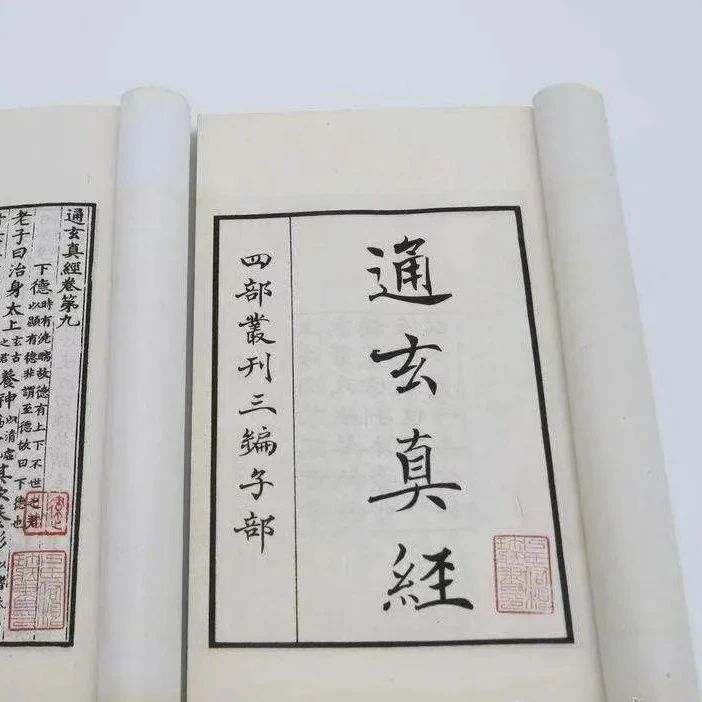 通玄真經
四部叢刊三編子部
通玄真經卷第九
下德時有澆醨故德有上下不世之君
以顯有德非謂至德故曰下德也
老子曰治身太上養神